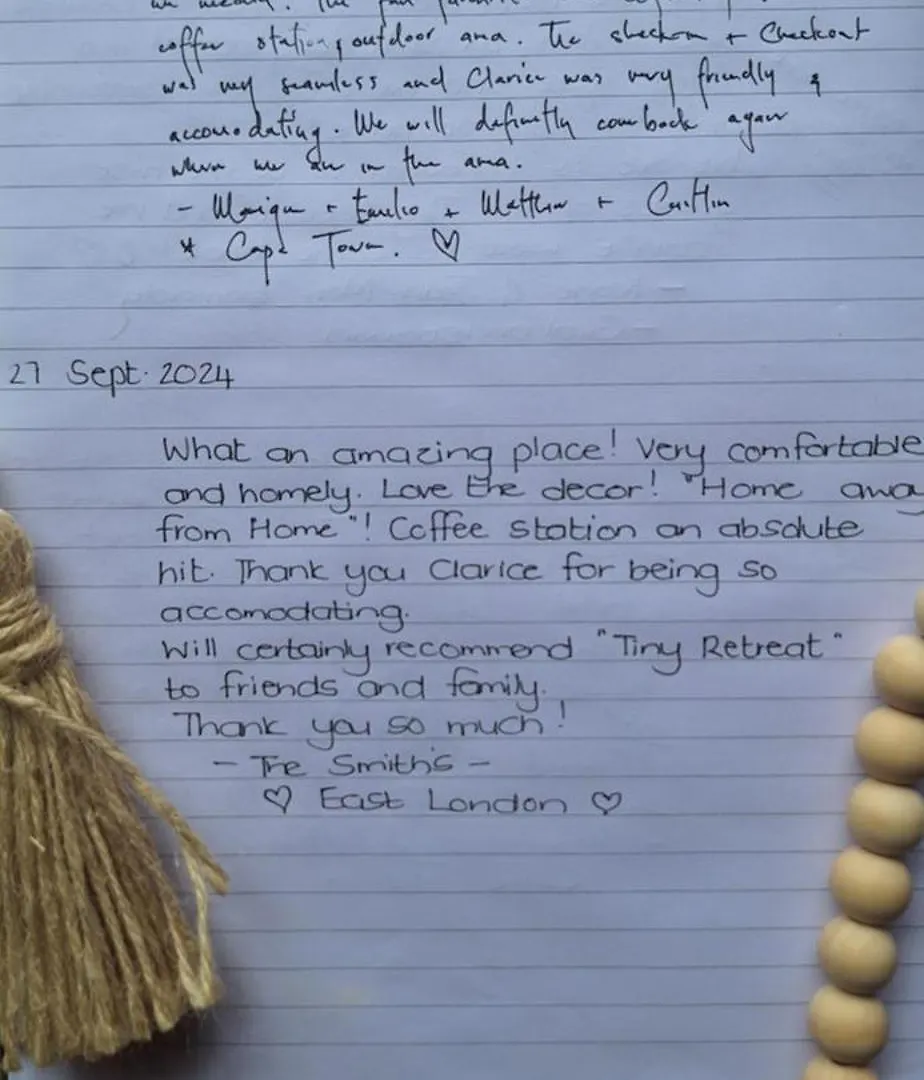 coffee station, outdoor area. The checkin + Checkout
was very seamless and Clarice was very friendly &
accomodating. We will definetly come back again
when we are in the area.
- + Emilio + Matthew + Caitlin
* Cape Town. ♡
27 Sept. 2024
What an amazing place! Very comfortable
and homely. Love the decor! "Home away
from Home"! Coffee station an absolute
hit. Thank you Clarice for being so
accomodating.
Will certainly recommend "Tiny Retreat"
to friends and family.
Thank you so much!
- The Smith's -
♡ East London ♡